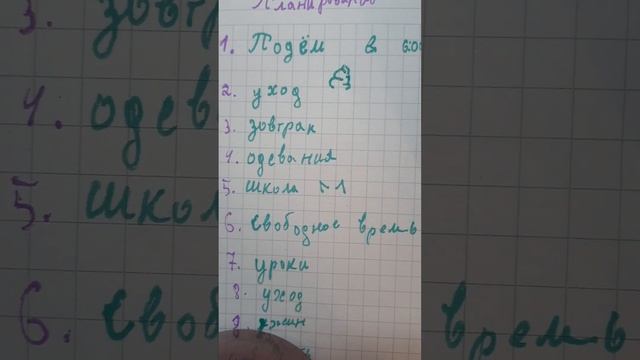 Планирование
1. Подём в 6:00
2. уход
3. зовтрак
4. одевания
5. школа
6. свободное время
7. уроки
8. уход
9. ужин